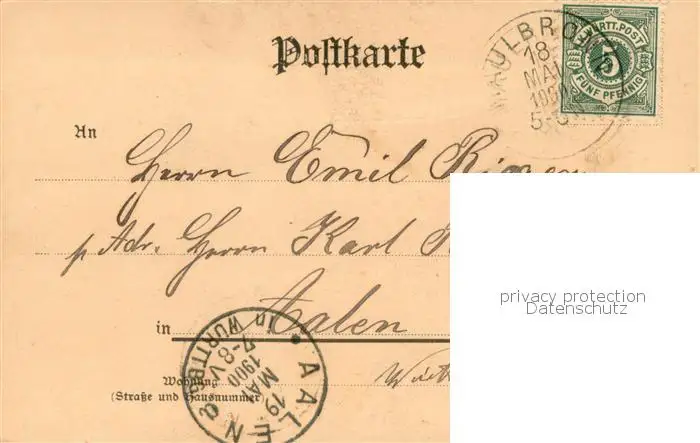 Postkarte
MAULBRONN
18
MAI
1900
K. WÜRTT. POST
5
FÜNF PFENNIG
An
Herrn Emil
p. Adr. Herrn Karl
in Aalen
Wohnung
(Straße und Hausnummer)
AALEN
in WÜRTTBG.
7-8 V.
1900
MAI
19
a
privacy protection
Datenschutz